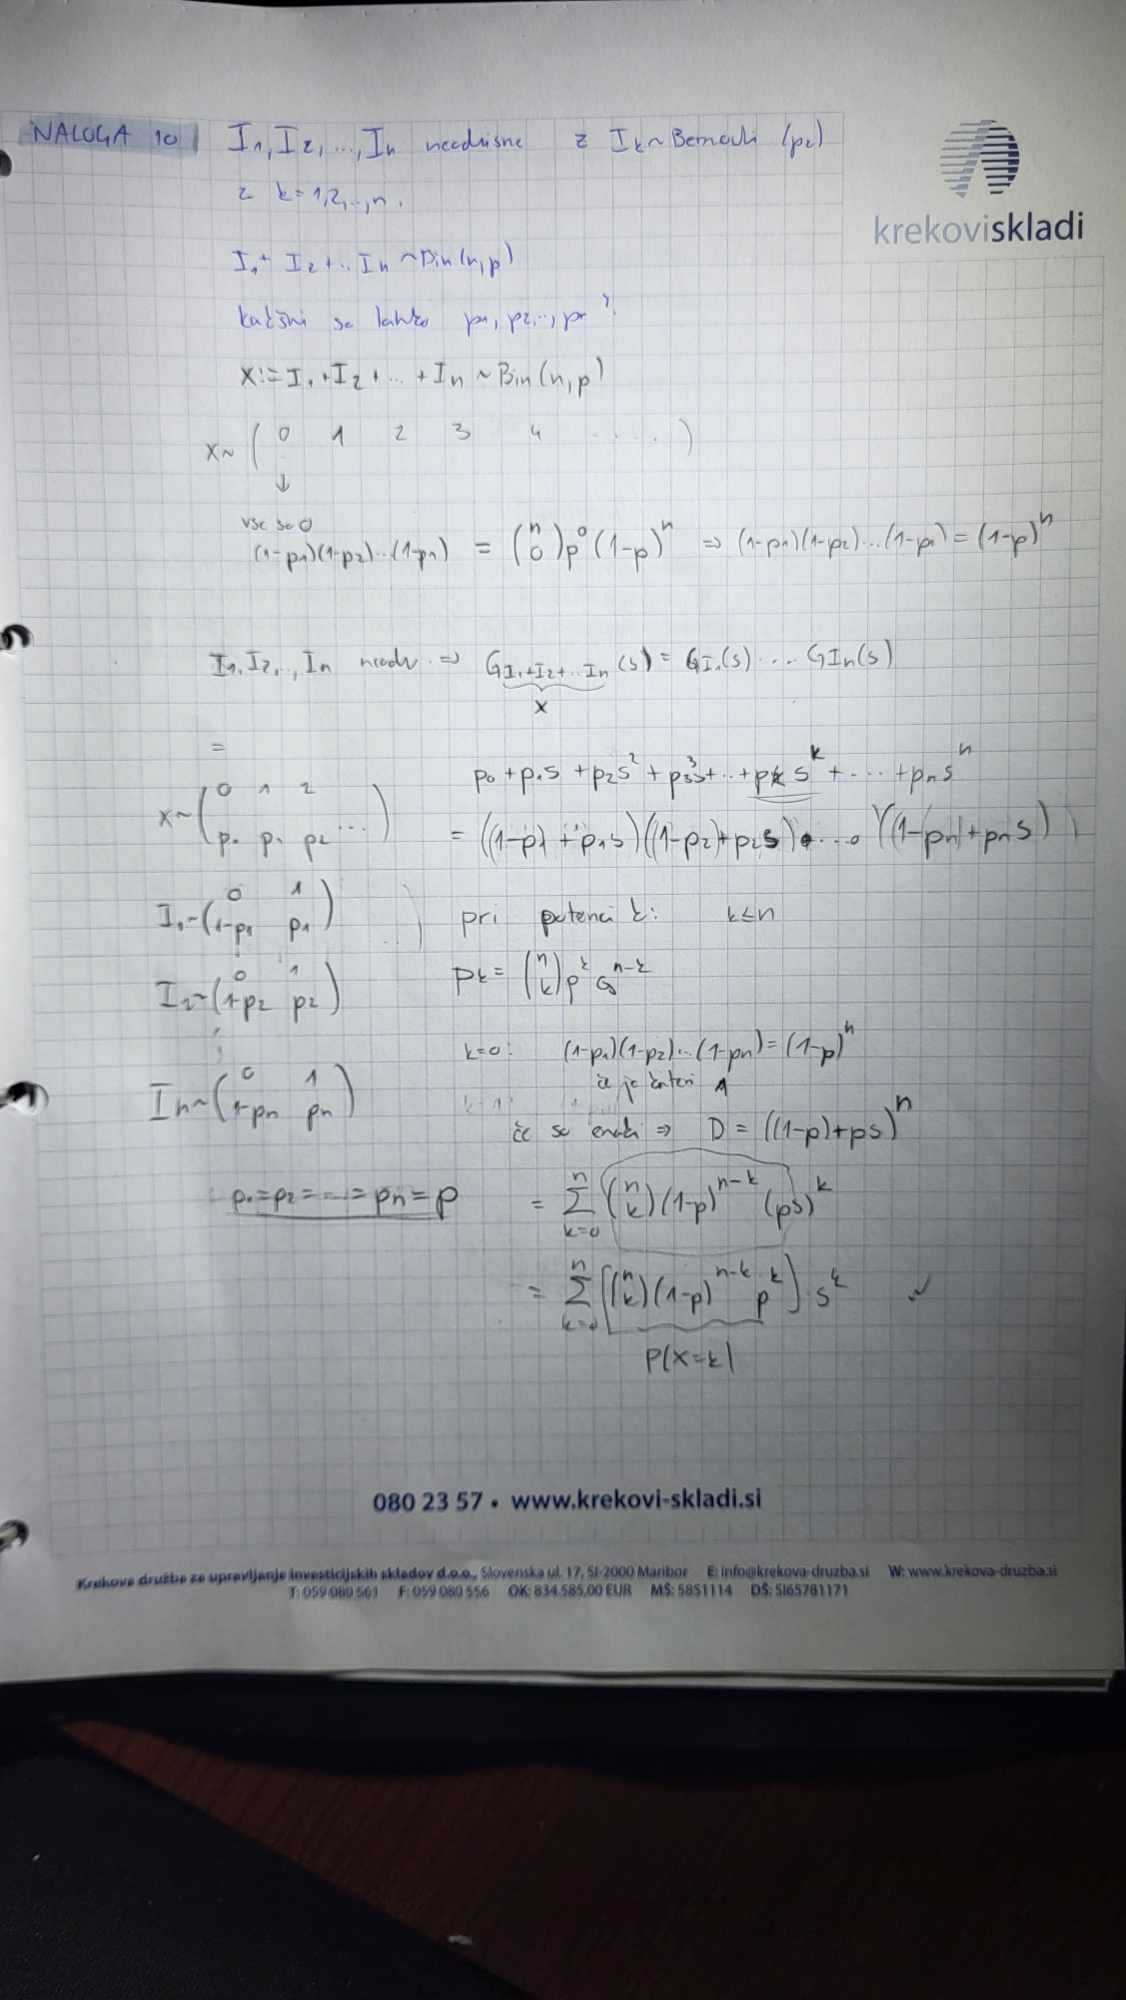 NALOGA 10 I₁, I₂, ..., Iₙ neodvisne z Iₖ ~ Bernouli (pₖ)
z k = 1,2,..,n.
krekoviskladi
I₁ + I₂ + .. Iₙ ~ Bin(n,p)
kakšni so lahko p₁, p₂,.., pₙ?
X := I₁ + I₂ + ... + Iₙ ~ Bin(n,p)
X ~ ( 0 1 2 3 4 . . . . )
↓
vse so 0
(1-p₁)(1-p₂)...(1-pₙ) = (n 0) p⁰ (1-p)ⁿ ⇒ (1-p₁)(1-p₂)...(1-pₙ) = (1-p)ⁿ
I₁, I₂,.., Iₙ neodv. ⇒ G_{I₁+I₂+..Iₙ}(s) = G_{I₁}(s) ... G_{Iₙ}(s)
X
=
p₀ + p₁s + p₂s² + p₃s³ + .. + pₖ s^k + ... + pₙ sⁿ
X ~ ( 0 1 2 ... )
( p₀ p₁ p₂ ... )
= ((1-p₁) + p₁s)((1-p₂) + p₂s) • ... • ((1-pₙ) + pₙs)
I₁ ~ ( 0 1 )
( 1-p₁ p₁ )
pri potenci k: k ≤ n
I₂ ~ ( 0 1 )
( 1-p₂ p₂ )
pₖ = (n k) p^k q^{n-k}
k=0: (1-p₁)(1-p₂)...(1-pₙ) = (1-p)ⁿ
če je kateri 1
Iₙ ~ ( 0 1 )
( 1-pₙ pₙ )
če so enaki ⇒ D = ((1-p)+ps)ⁿ
p₁ = p₂ = ... = pₙ = p
= Σ_{k=0}^{n} (n k)(1-p)^{n-k} (ps)^k
= Σ_{k=0}^{n} [(n k)(1-p)^{n-k} p^k] · s^k ✓
P(X=k)
080 23 57 • www.krekovi-skladi.si
Krekova družba za upravljanje investicijskih skladov d.o.o., Slovenska ul. 17, SI-2000 Maribor E: info@krekova-druzba.si W: www.krekova-druzba.si
T: 059 080 561 F: 059 080 556 OK: 834.585,00 EUR MŠ: 5851114 DŠ: SI65781171